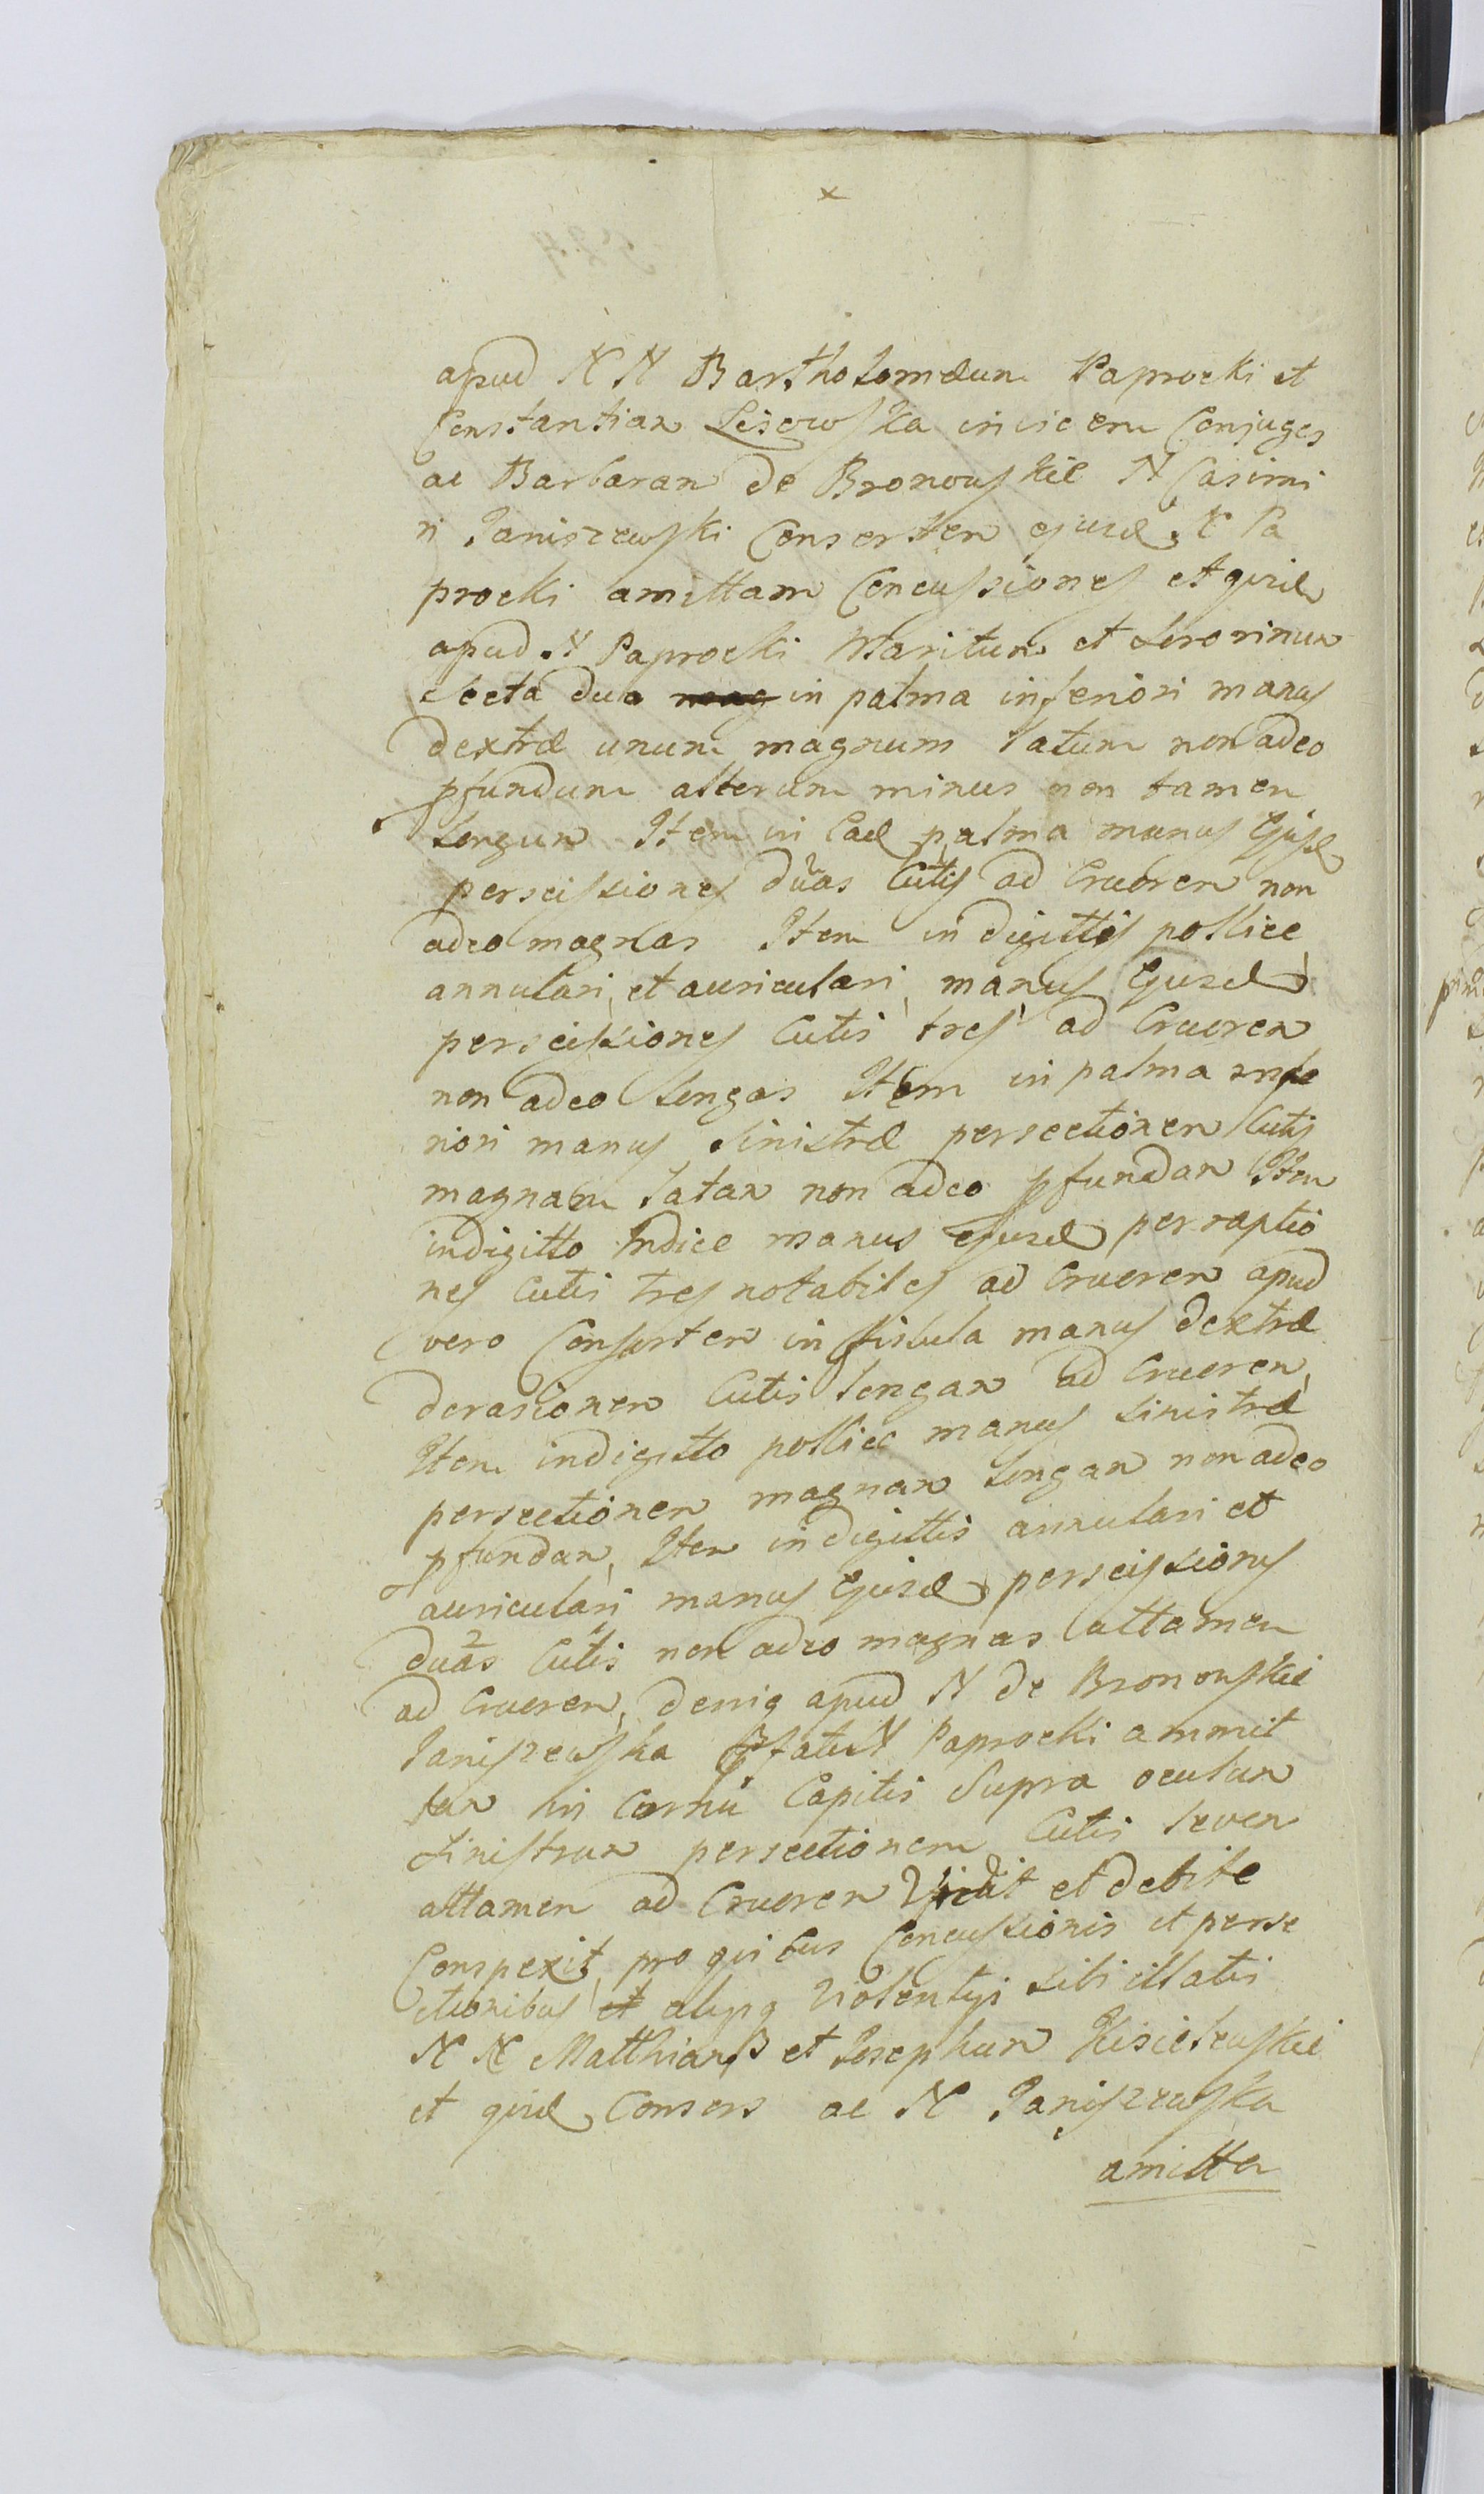 x
apud N N Bartholomæum Paprocki et
Constantiam Lisowska invicem Conjuges
ac Barbaram de Bronowskie N Casimi
ri Janiszewski Consortem ejusd N Pa
procki amittam Concussiones et quid
apud N Paprocki Maritum et
secta duo in palma inferiori manus
dextræ unum magnum latum non adeo
pfundum alterum minus non tamen
longum Item in Ead palma manus Ejusd
perscissiones duas Cutis ad Cruorem non
adeo magnas Item in digittis pollice
annulari, et auriculari, manus Ejusd
perscissiones Cutis tres ad Cruorem
non adeo longas Item in palma infe
riori manus sinistræ persectionem Cutis
magnam latam non adeo pfundam Item
in digitto Indice manus ejusd perraptio
nes Cutis tres notabiles ad Cruorem apud
vero Consortem in fistula manus dextræ
derasionem Cutis longam ad Cruorem,
Item in digitto pollice manus sinistræ
persectionem magnam longam non adeo
pfundam, Item in digittis annulari et
auriculari manus Ejusd perscissiones
duas Cutis non adeo magnas attamen
ad Cruorem, deniq apud N de Bronowskie
Janiszewska Pfati N Paprocki ammit
tam in Cornu Capitis Supra oculum
sinistrum persectionem Cutis levem
attamen ad Cruorem Vidit et debite
Conspexit, pro quibus Concussionis et perse
ctionibus et alysq violentys sibi illatis
N N Matthiam et Josephum Kisielewskie
et quid Consors ac N Janiszewska
amitta